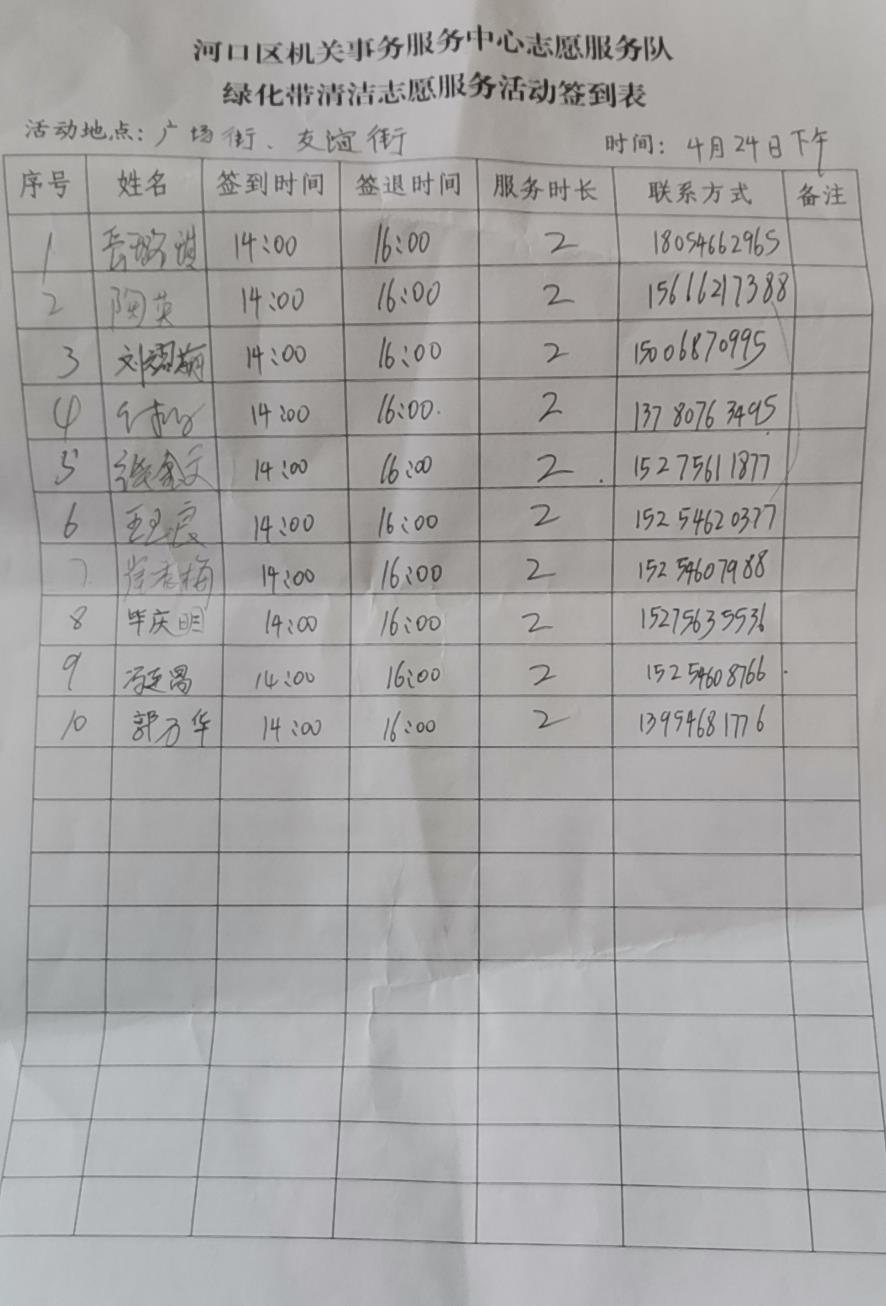 河口区机关事务服务中心志愿服务队
绿化带清洁志愿服务活动签到表
活动地点：广场街、友谊街 时间：4月24日下午
序号 姓名 签到时间 签退时间 服务时长 联系方式 备注
1 14:00 16:00 2 18054662965
2 陶英 14:00 16:00 2 15666217388
3 刘 14:00 16:00 2 15006870995
4 14:00 16:00 2 13780763495
5 14:00 16:00 2 15275611877
6 14:00 16:00 2 15254620377
7 徐春梅 14:00 16:00 2 15254607988
8 毕庆明 14:00 16:00 2 15275635536
9 冯延昌 14:00 16:00 2 15254608766
10 郭万华 14:00 16:00 2 13954681776